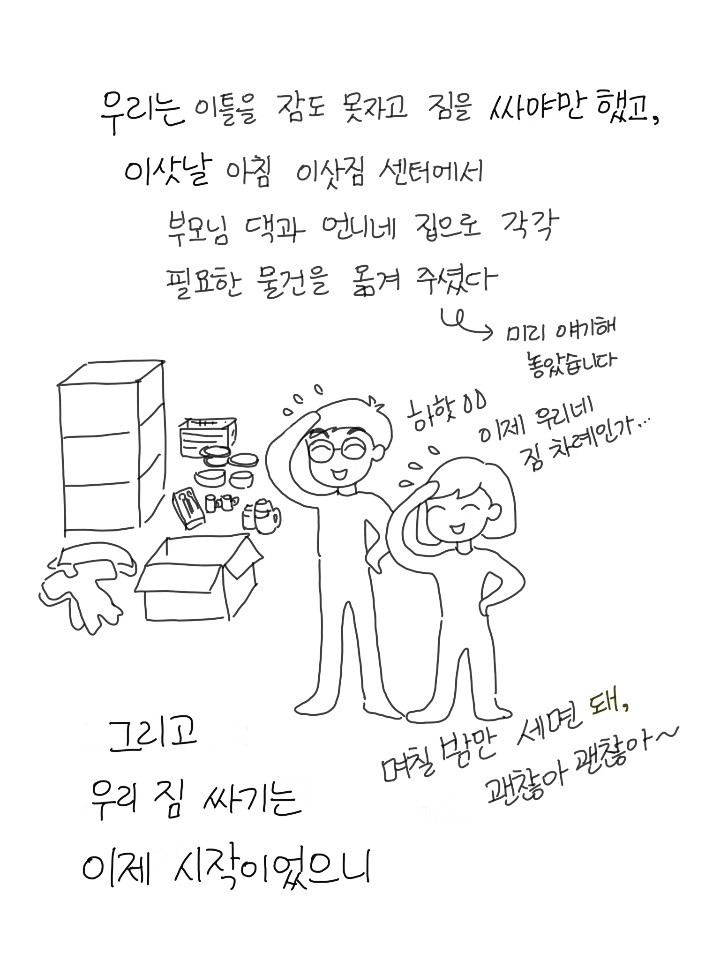 우리는 이틀을 잠도 못자고 짐을 싸야만 했고,
이삿날 아침 이삿짐 센터에서
부모님 댁과 언니네 집으로 각각
필요한 물건을 옮겨 주셨다
미리 얘기해
놓았습니다
하핫00
이제 우리네
짐 차례인가...
며칠 밤만 세면 돼,
괜찮아 괜찮아~
그리고
우리 짐 싸기는
이제 시작이었으니